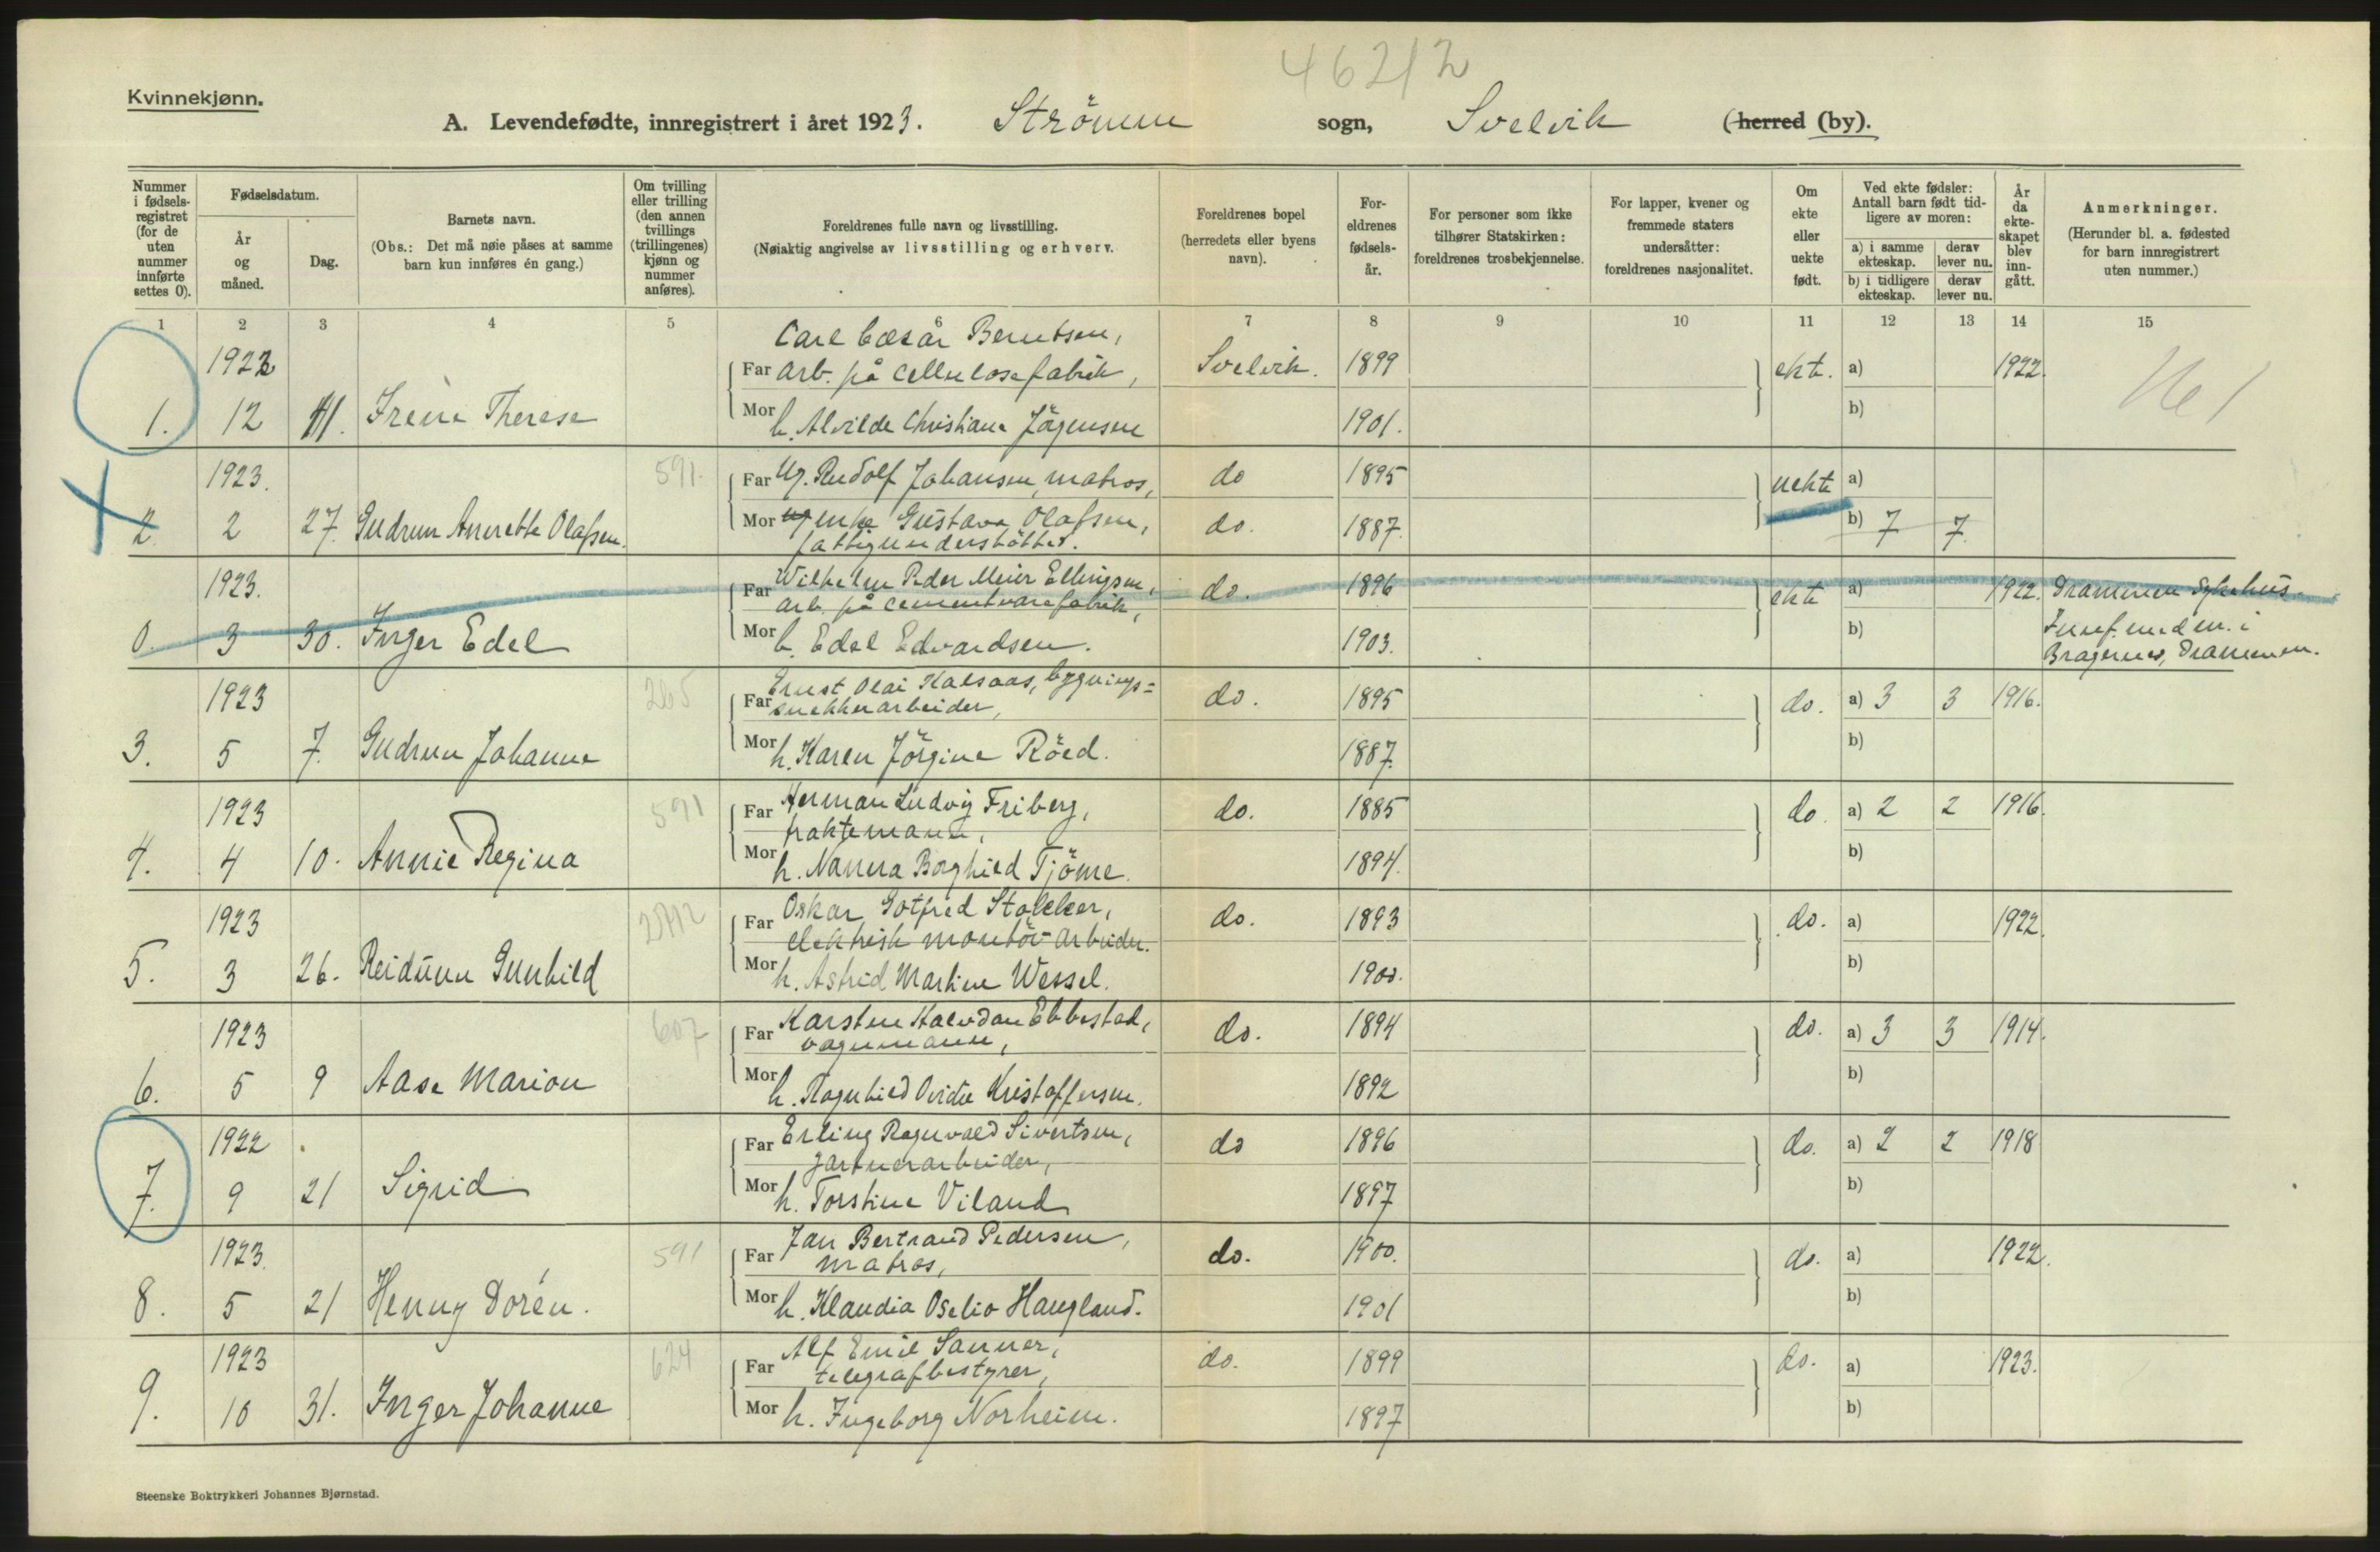 46212
Kvinnekjønn.
A. Levendefødte, innregistrert i året 1923. Strömm sogn, Svelvik (herred (by).
Nummer i fødselsregistret (for de uten nummer innførte settes 0).
Fødselsdatum.
År og måned.
Dag.
Barnets navn.
(Obs.: Det må nøie påses at samme barn kun innføres én gang.)
Om tvilling eller trilling (den annen tvillings (trillingenes) kjønn og nummer anføres).
Foreldrenes fulle navn og livsstilling.
(Nøiaktig angivelse av livsstilling og erhverv.
Foreldrenes bopel (herredets eller byens navn).
Foreldrenes fødselsår.
For personer som ikke tilhører Statskirken: foreldrenes trosbekjennelse.
For lapper, kvener og fremmede staters undersåtter: foreldrenes nasjonalitet.
Om ekte eller uekte født.
Ved ekte fødsler: Antall barn født tidligere av moren:
a) i samme ekteskap. derav lever nu.
b) i tidligere ekteskap. derav lever nu.
År da ekteskapet blev inngått.
Anmerkninger.
(Herunder bl. a. fødested for barn innregistrert uten nummer.)
1 2 3 4 5 6 7 8 9 10 11 12 13 14 15
Carl Cæsár Berntsen,
1922 Far arb. på cellulosefabrik, Svelvik. 1899 ekt. a) 1922.
1. 12 11. Irene Therese Mor h. Alvilde Christiane Jörgensen 1901. b)
1923. 591. Far Ug. Rudolf Johansen, matros, do 1895 uekte a)
2 2 27. Gudrun Annette Olafsen. Mor enke Gustava Olafsen, do. 1887. b) 7 7.
fattigunderstöttet.
1923. Far Wilhelm Peder Meier Ellingsen, do. 1896 ekte a) 1922. Drammen Sykehus.
arb. på cementvarefabrik,
0. 3 30. Inger Edel Mor h. Edel Edvardsen. 1903. b) Innf. med nr. i
Bragernes, Drammen.
1923 265 Far Ernst Olai Kalsaas, bygnings=
snekkerarbeider, do. 1895 do. a) 3 3 1916.
3. 5 7. Gudrun Johanne Mor h. Karen Jörgine Röed. 1887. b)
1923 591 Far Herman Ludvig Friberg, do. 1885 do. a) 2 2 1916.
fraktemann,
4. 4 10. Annie Regina Mor h. Nanna Borghild Tjöme. 1894. b)
1923 Far Oskar Gotfred Stokker, do. 1893 do. a) 1922.
elektrisk montör-arbeider.
5. 3 26. Reidunn Gunhild Mor h. Astrid Martine Wessel. 1900. b)
1923 607 Far Karsten Halvdan Ebbestad, do. 1894 do. a) 3 3 1914.
vognmann,
6. 5 9 Aase Marion Mor h. Ragnhild Ovidie Kristoffersen. 1892 b)
1922 Far Erling Ragnvald Sivertsen, do 1896 do. a) 2 2 1918
gartnerarbeider,
7. 9 21 Sigrid Mor h. Torstine Viland 1897 b)
1923. 591 Far Jan Bertrand Pedersen, do. 1900. do. a) 1922.
matros,
8. 5 21 Henny Dorén. Mor h. Klaudia Oselio Haugland. 1901 b)
1923 624 Far Alf Emil Sanner, do. 1899 do. a) 1923.
telegrafbestyrer,
9. 10 31. Inger Johanne Mor h. Ingeborg Norheim. 1897 b)
Steenske Boktrykkeri Johannes Bjørnstad.